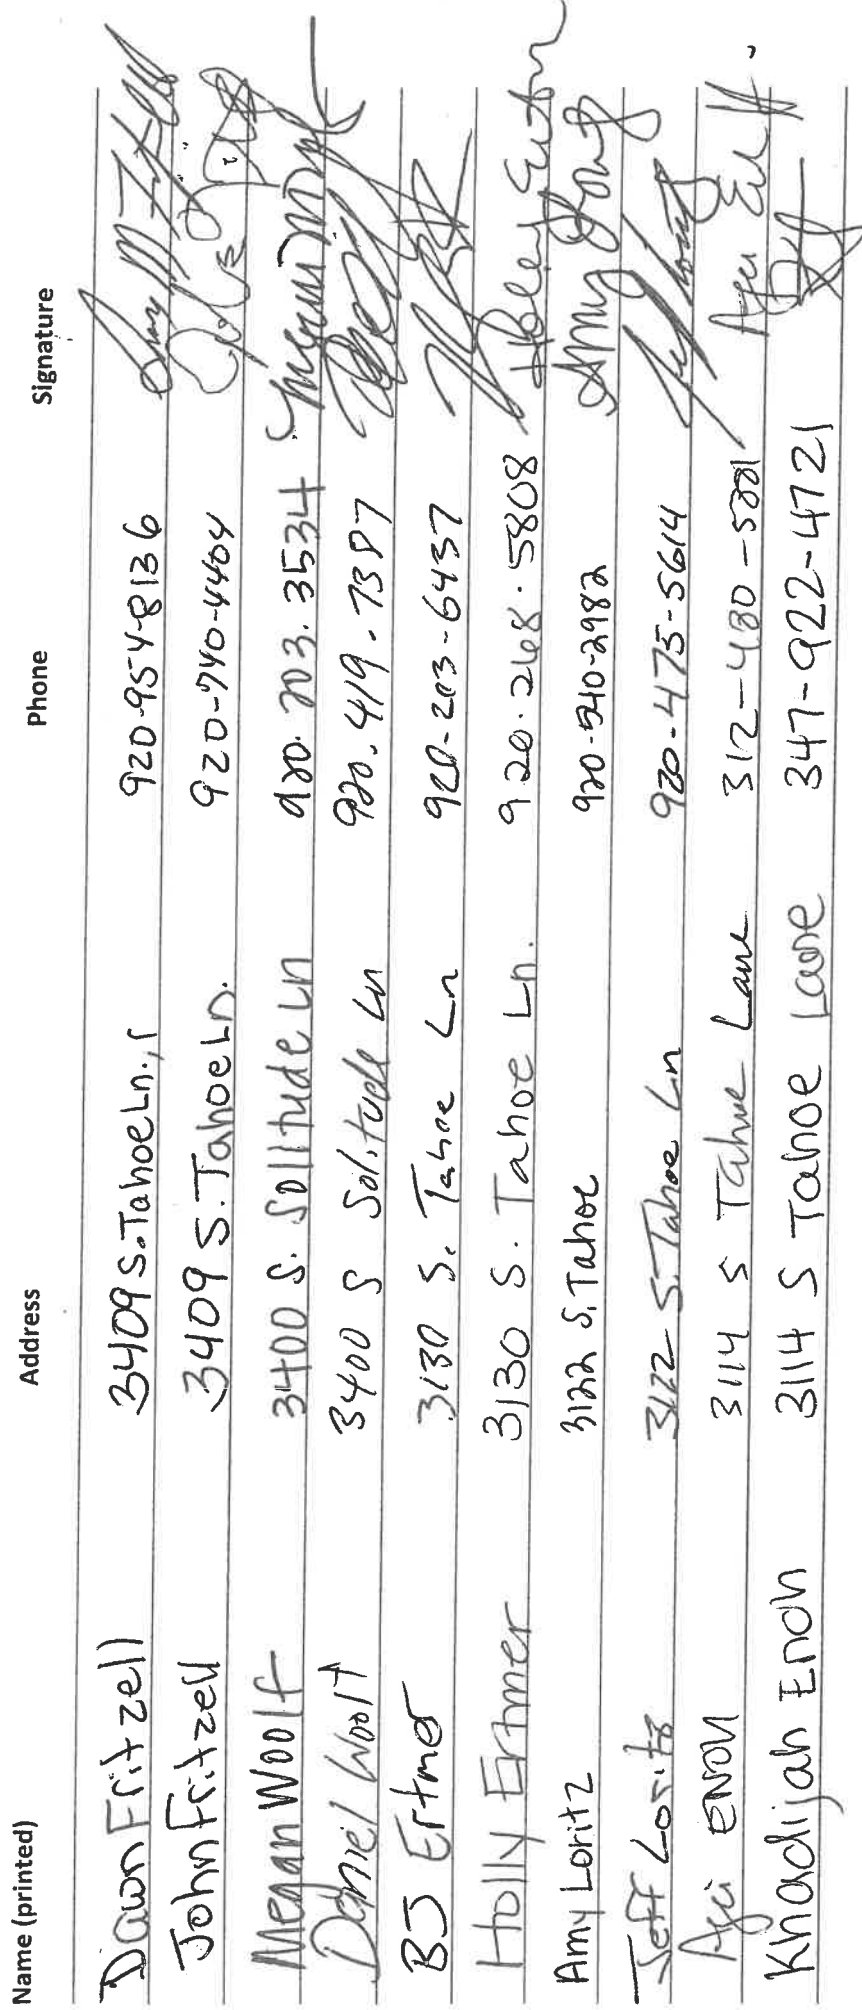 Name (printed) Address Phone Signature
Dawn Fritzell 3409 S. Tahoe Ln., 920-954-8136
John Fritzell 3409 S. Tahoe Ln. 920-740-4404
Megan Woolf 3400 S. Solitude Ln 920.203.3534
Daniel Woolf 3400 S Solitude Ln 920.419.7387
BJ Ertmer 3130 S. Tahoe Ln 920-203-6437
Holly Ertmer 3130 S. Tahoe Ln. 920.268.5808 Holly Ertmer
Amy Loritz 3122 S. Tahoe 920-540-2982 Amy Loritz
Jeff Loritz 3122 S. Tahoe Ln 920-475-5614
3114 S Tahoe Lane
Khadijah Enoh 3114 S Tahoe Lane 347-922-4721